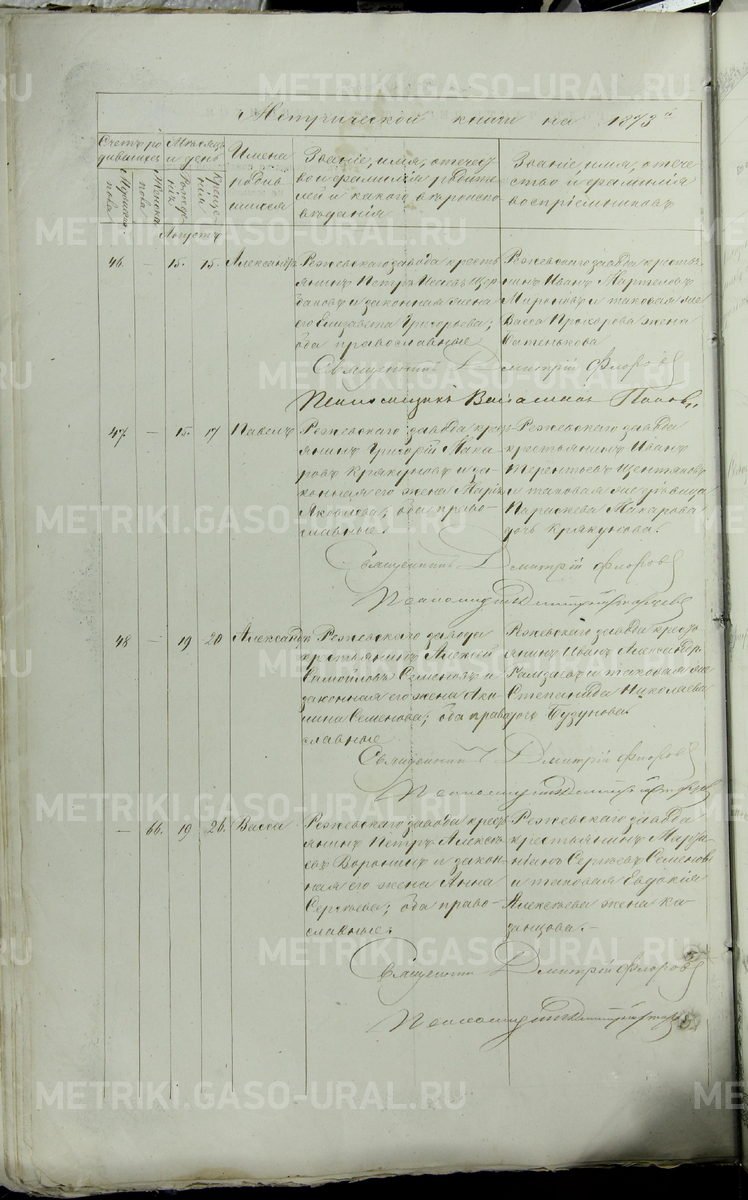 Метрической книги на 1873й
Счетъ родившихся
Мужеска пола
Женска пола
Мѣсяцъ и день
Рожденія
Крещенія
Имена родившихся
Званіе, имя, отечество и фамилія родителей и какого вѣроисповѣданія
Званіе, имя, отечество и фамилія воспріемниковъ
Августъ
46. — 15. 15. Александръ
Режевскаго завода крестьянинъ Петръ
и законная жена
его Елизавета Григорьева;
оба православные
Режевскаго завода крестьянинъ Иванъ
Мироновъ и таковая же
Васса Прохорова жена
Священникъ Дмитрій Флоровъ
Псаломщикъ Поповъ
47. — 15. 17 Павелъ
Режевскаго завода крестьянинъ Григорій Макаровъ Крякуновъ и законная его жена Марія
Яковлева; оба православные.
Режевскаго завода
крестьянинъ Иванъ
Терентьевъ
и таковая же дѣвица
Параскева Макарова
дочь Крякунова.
Священникъ Дмитрій Флоровъ
Псаломщикъ Димитрій
48 — 19 20 Александръ
Режевскаго завода
крестьянинъ Алексѣй
Самойловъ Семеновъ и
законная его жена Акилина Семенова; оба православные
Режевскаго завода крестьянинъ Иванъ Александровъ
и таковая же
Степанида Николаева
Бузунова.
Священникъ Дмитрій Флоровъ
Псаломщикъ Димитрій
— 66. 19 26. Васса
Режевскаго завода крестьянинъ Петръ Алексѣевъ Воронинъ и законная его жена Анна
Сергѣева; оба православные.
Режевскаго завода
крестьянинъ
Сергѣевъ Семеновъ
и таковая Евдокія
Алексѣева жена Казанцова. —
Священникъ Дмитрій Флоровъ
Псаломщикъ Димитрій
METRIKI.GASO-URAL.RU